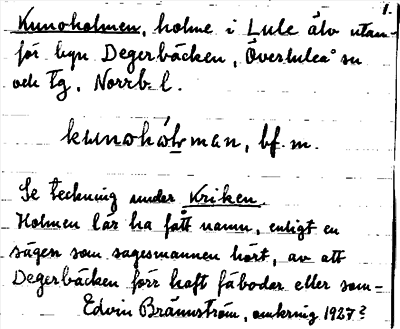 1.
Kunoholmen, holme i Lule älv utan-
för byn Degerbäcken, Överluleå sn
och tg, Norrb. l.
kunohålman, bf. m.
Se teckning under Kriken.
Holmen lär ha fått namn, enligt en
sägen som sagesmannen hört, av att
Degerbäcken förr haft fäbodar eller som-
Edvin Brännström, omkring 1927?